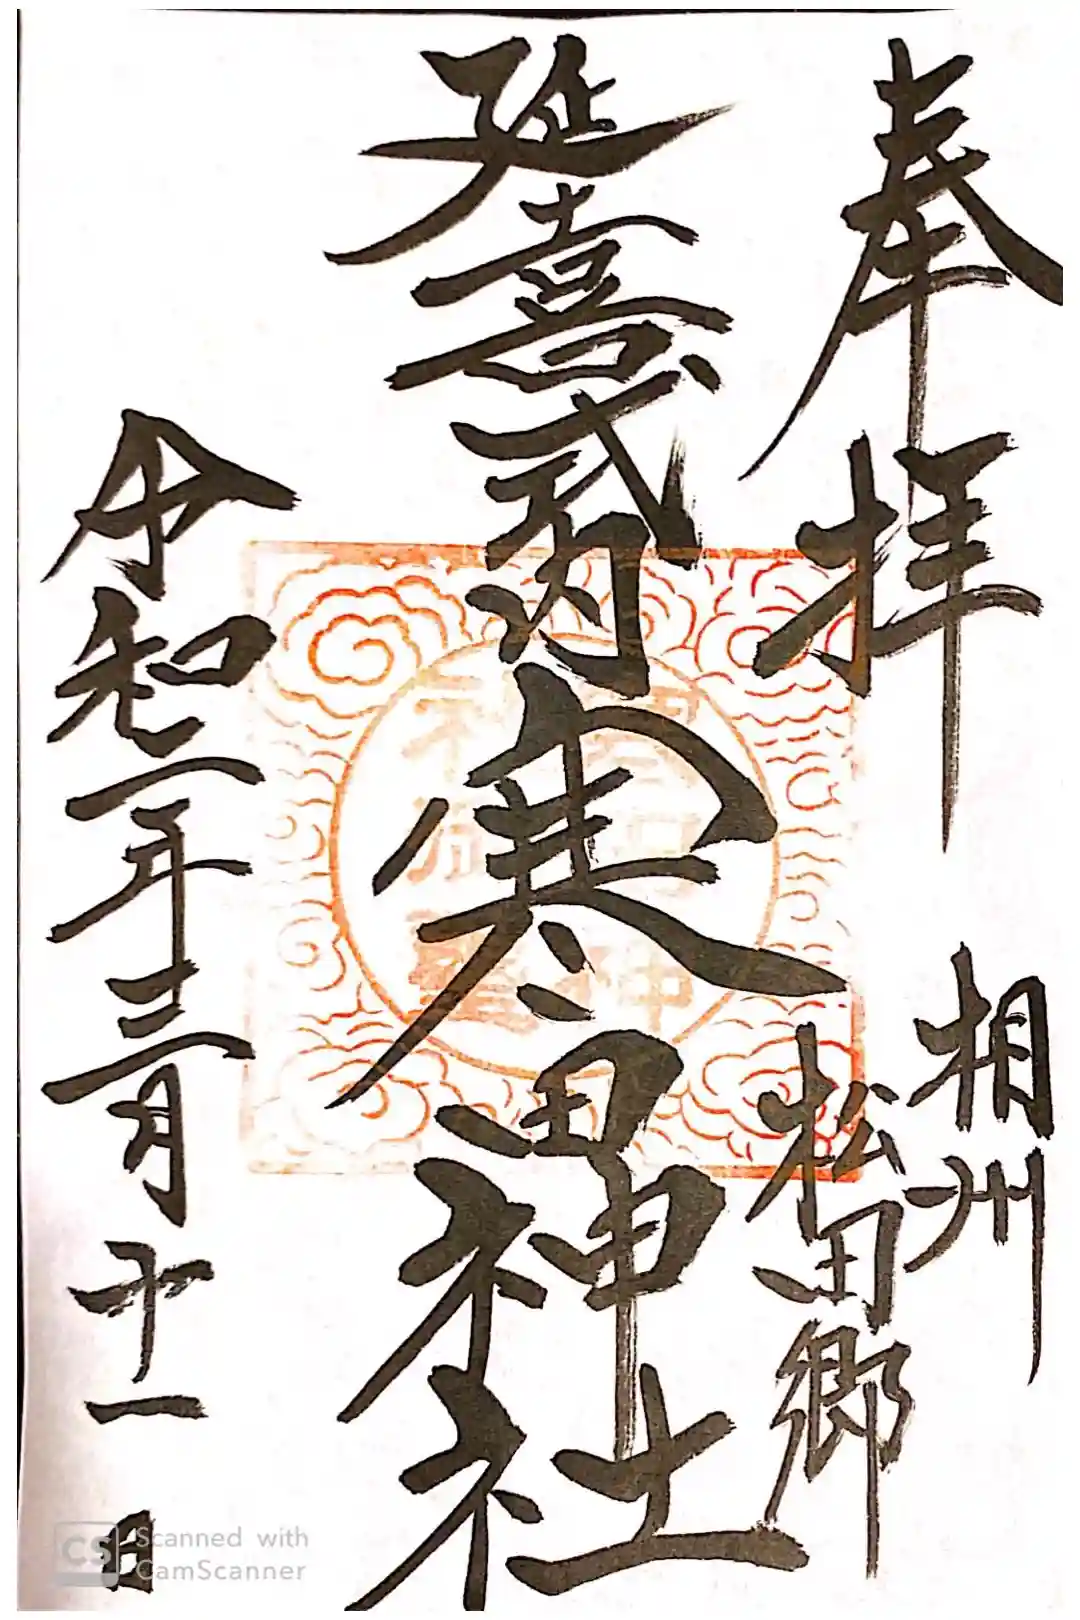 奉拝
相州
松田郷
延喜式内
寒田神社
令和二年三月
十一日
Scanned with
CamScanner